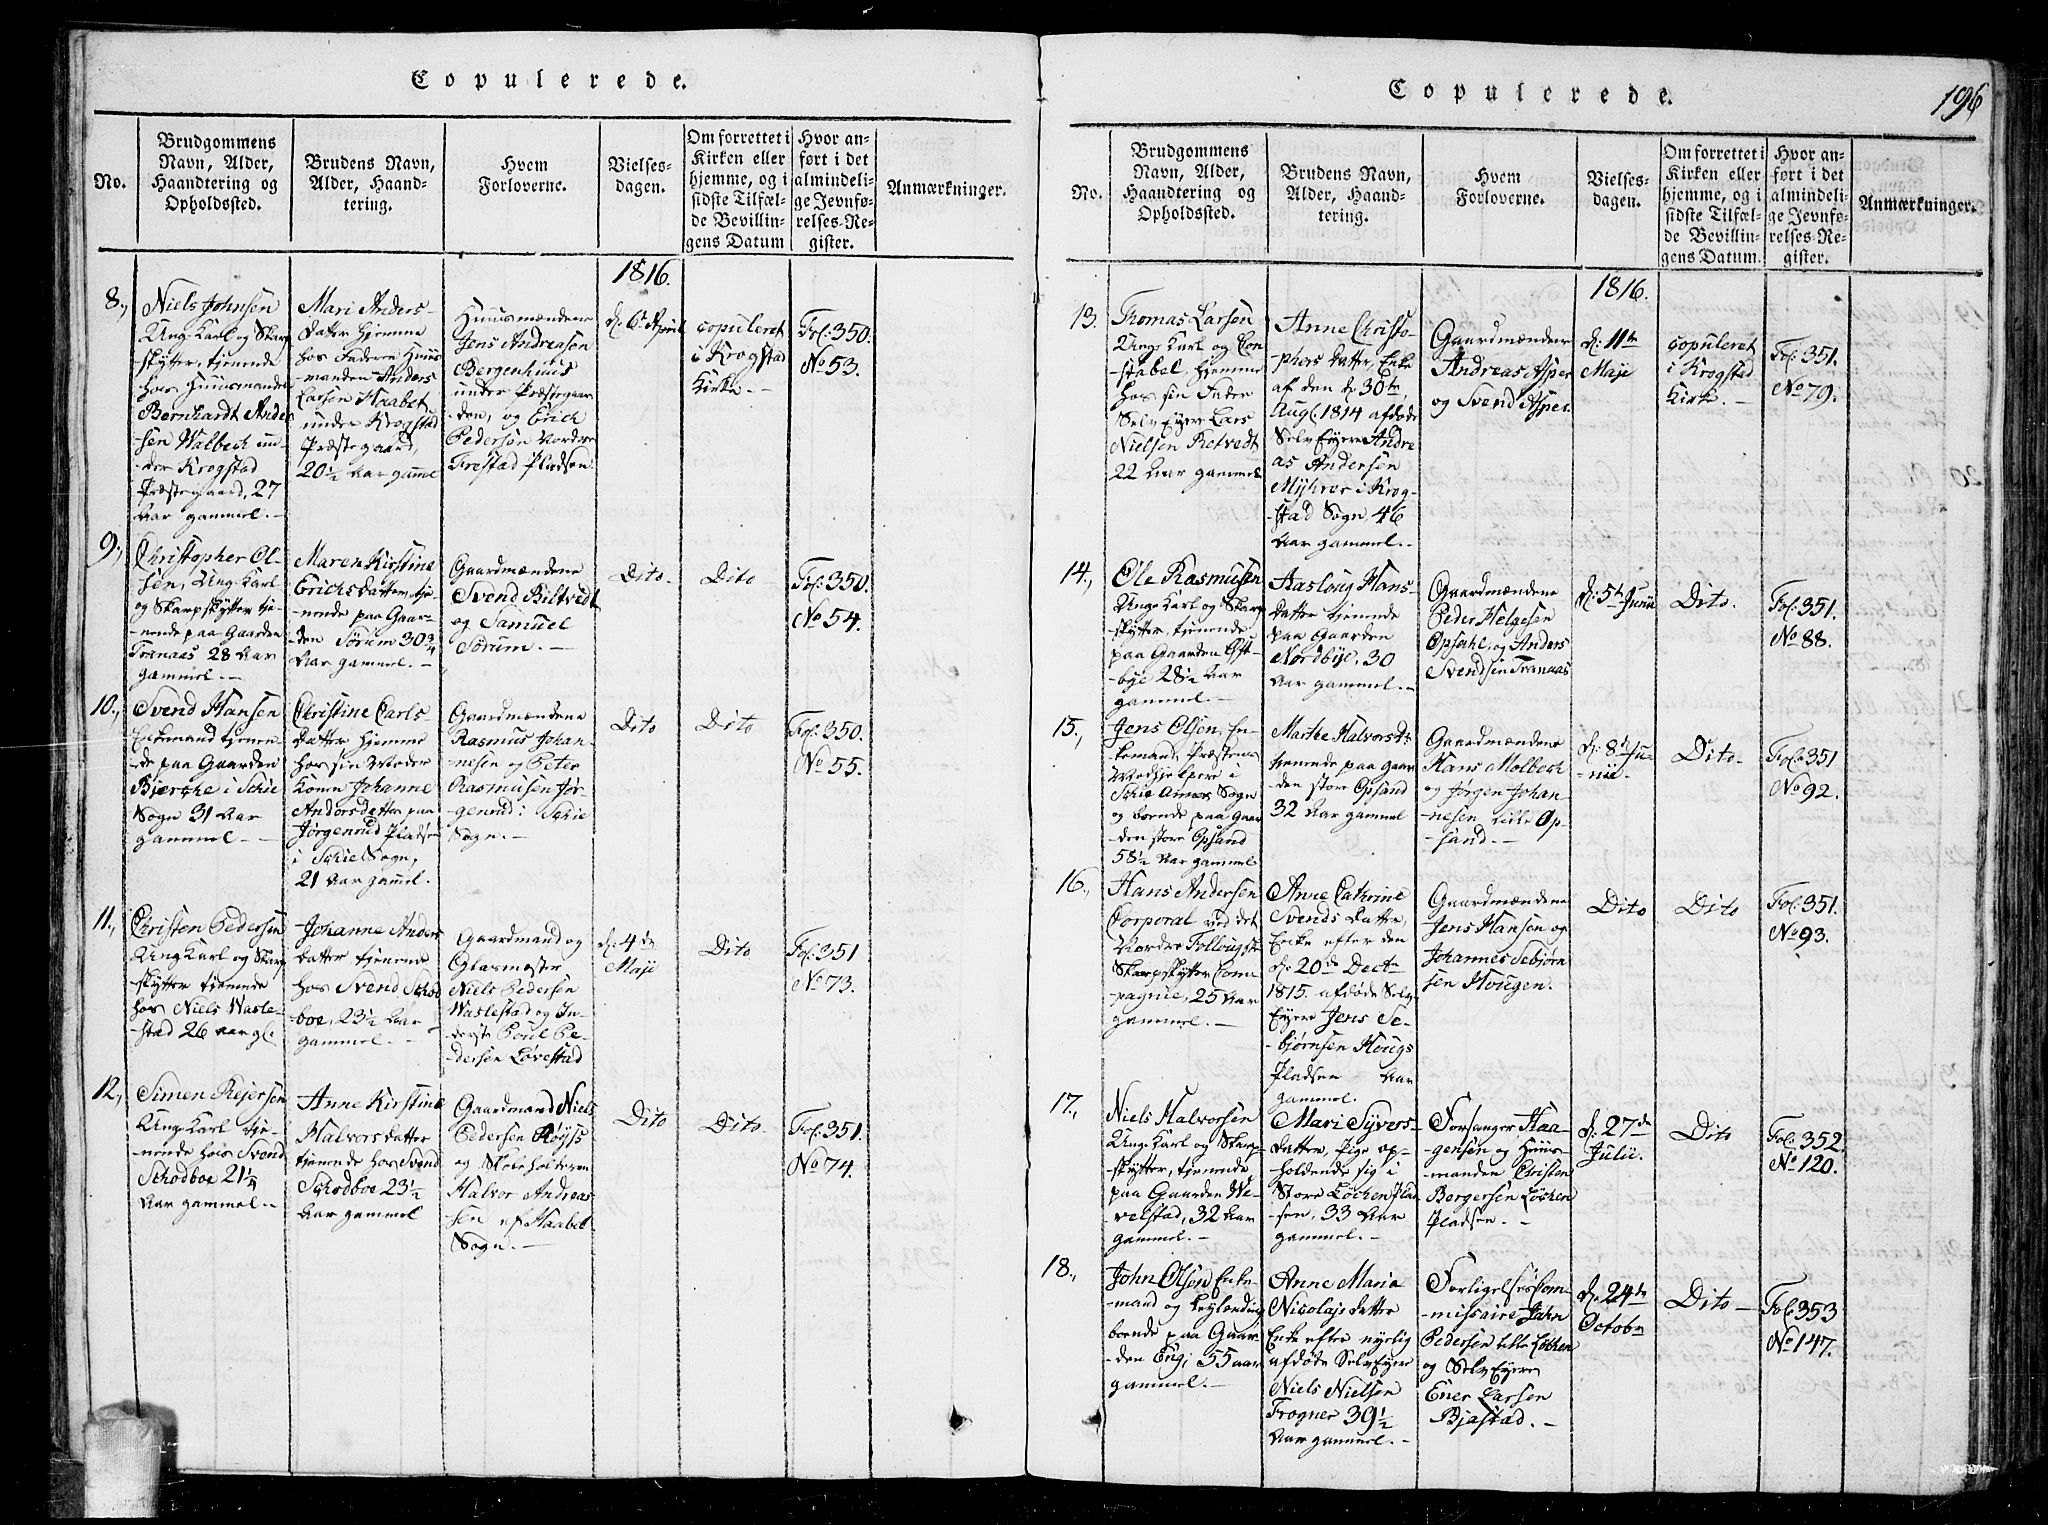 Copulerede.
No.
Brudgommens
Navn, Alder,
Haandtering og
Opholdssted.
Brudens Navn,
Alder, Haand-
tering.
Hvem
Forloverne.
Vielses-
dagen.
Om forrettet i
Kirken eller
hjemme, og i
sidste Tilfæl-
de Bevillin-
gens Datum
Hvor an-
ført i det
almindeli-
ge Jevnfø-
relses-Re-
gister.
Anmærkninger.
1816.
8.,
Niels Johnsen
Ung Karl og Skarp
skytter, tjenende
hos Huusmanden
Bernhardt Ander
sen Walbech un-
der Krogstad
Præstegaard, 27
Aar gammel. -
Mari Anders-
datter hjemme
hos Faderen Huus
manden Anders
Larsen Haabet
under Krogstad
Præstegaard,
20½ Aar gaml
Huusmændene
Jens Andreasen
Bergenhuus
under Præstegaar
den, og Erich
Pedersen Nordre
Frestad Pladsen
d: 6te April
copuleret
i Krogstad
Kirke. -
Fol: 350.
No 53.
9.,
Christopher Ol-
sen, Ung Karl
og Skarpskytter tje-
nende paa Gaarden
Tranaas 28 Aar
gammel. -
Maren Kirstine
Erichsdatter, tje-
nende paa Gaar-
den Sørum 30¾
Aar gammel. -
Gaardmændene
Svend Biltvedt
og Samuel
Sørum. -
Dito.
Dito
Fol: 350.
No 54.
10.,
Svend Hansen
Enkemand tjenen-
de paa Gaarden
Bjerche i Schie
Sogn 31 Aar
gammel -
Christine Carls-
datter hjemme
hos sin Moder
Konen Johanne
Andersdatter paa
Jørgenrud Pladsen
i Schie Sogn,
21 Aar gaml.
Gaardmændene
Rasmus Johan-
nesen og Peter
Rasmusen Jør-
genrud i Schie
Sogn. -
Dito
Dito
Fol: 350.
No 55.
11.,
Christen Pedersen
Ung Karl og Skarp
skytter tjenende
hos Niels Wasle-
stad 26 aar gl.
Johanne Anders
datter tjenende
hos Svend Schod
boe, 23½ Aar
gammel. -
Gaardmand og
Glasmester
Niels Pedersen
Waslestad og In-
derste Poul Pe-
dersen Løvestad
d: 4de
Maji
Dito
Fol: 351
No 73.
12.,
Simen Rejersen
Ung Karl tje-
nende hos Svend
Schodboe 21¼
Aar gammel. -
Anne Kirstine
Halvors datter
tjenende hos Svend
Schodboe 23½
Aar gammel
Gaardmand Niels
Pedersen Røyss
og Skoleholderen
Halvor Andreas
sen af Haabel
Sogn. -
Dito
Dito
Fol: 351.
No 74.
Copulerede.
196
No.
Brudgommens
Navn, Alder,
Haandtering og
Opholdssted.
Brudens Navn,
Alder, Haand-
tering.
Hvem
Forloverne.
Vielses-
dagen.
Om forrettet i
Kirken eller
hjemme, og i
sidste Tilfæl-
de Bevillin-
gens Datum.
Hvor an-
ført i det
almindeli-
ge Jevnfø-
relses-Re-
gister.
Anmærkninger.
1816.
13.
Thomas Larsen
Ung Karl og Con
stabel, hjemme
hos sin Fader
Selv Eyere Lars
Nielsen Retvedt
22 Aar gammel
Anne Christo-
phers datter, Enke
af den d: 30te
Aug. 1814 afdøde
Selv Eyere Andre
as Andersen
Myhrer i Krog-
stad Sogn 46
Aar gammel. -
Gaardmændene
Andreas Asper
og Svend Asper
d: 11te
Maji
copuleret
i Krogstad
Kirk. -
Fol: 351.
No 79.
14.,
Ole Rasmusen
Unge Karl og Skarp
skytter, tjenende
paa Gaarden Øst-
bye 28½ Aar
gammel. -
Aasloug Hans-
datter tjenende
paa Gaarden
Nordbye. 30
Aar gammel. -
Gaardmændene
Peder Helgesen
Opsahl, og Anders
Svendsen Tranaas
d: 5te Junii
Dito.
Fol: 351.
No 88.
15.,
Jens Olsen, En-
kemand, Præstens
Medhjelpere i
Schie Annex Sogn
og boende paa Gaar
den store Opsand
58½ Aar gammel
Marthe Halvorsdr
tjenende paa Gaar
den store Opsand
32 Aar gammel
Gaardmændene
Hans Molbech
og Jørgen Johan
nesen lille Op-
sand. -
d: 8de Ju-
nii.
Dito
Fol: 351
No 92.
16.,
Hans Andersen
Corporal ved det
Nordre Follougske
Skarpskytter Com
pagnie, 25 Aar
gammel. -
Anne Cathrine
Svends datter,
Enke efter den
d: 20de Dectr
1815. afdøde Selv
Eyere Jens Se-
bjørnsen Hougs
Pladsen Aar
gammel.
Gaardmændene
Jens Hansen og
Johannes Sebjørn
sen Hougen.
Dito
Dito
Fol: 351.
No 93.
17.,
Niels Halvorsen
Ung Karl og Skarp
skytter, tjenende
paa Gaarden We-
velstad, 32 Aar
gammel. -
Mari Syvers-
datter, Pige op-
holdende sig i
Store Løchen Plad
sen, 33 Aar
gammel. -
Forsanger Haa-
gensen og Huus-
manden Christen
Borgersen Løchen
Pladsen. -
d: 27de
Julii.
Dito
Fol: 352.
No 120.
18.,
John Olsen Enke-
mand og Leylænding
boende paa Gaar-
den Eng, 55 aar
gammel. -
Anne Maria
Nicolajsdatter
Enke efter nylig
afdøde Selv Eyere
Niels Nielsen
Frogner 39½
Aar gammel. -
Forligelses Com-
missaire John
Pedersen lille Løchen
og Selv Eyere
Ener Larsen
Bjastad. -
d: 24de
Octobr
Dito -
Fol 353
No 147.